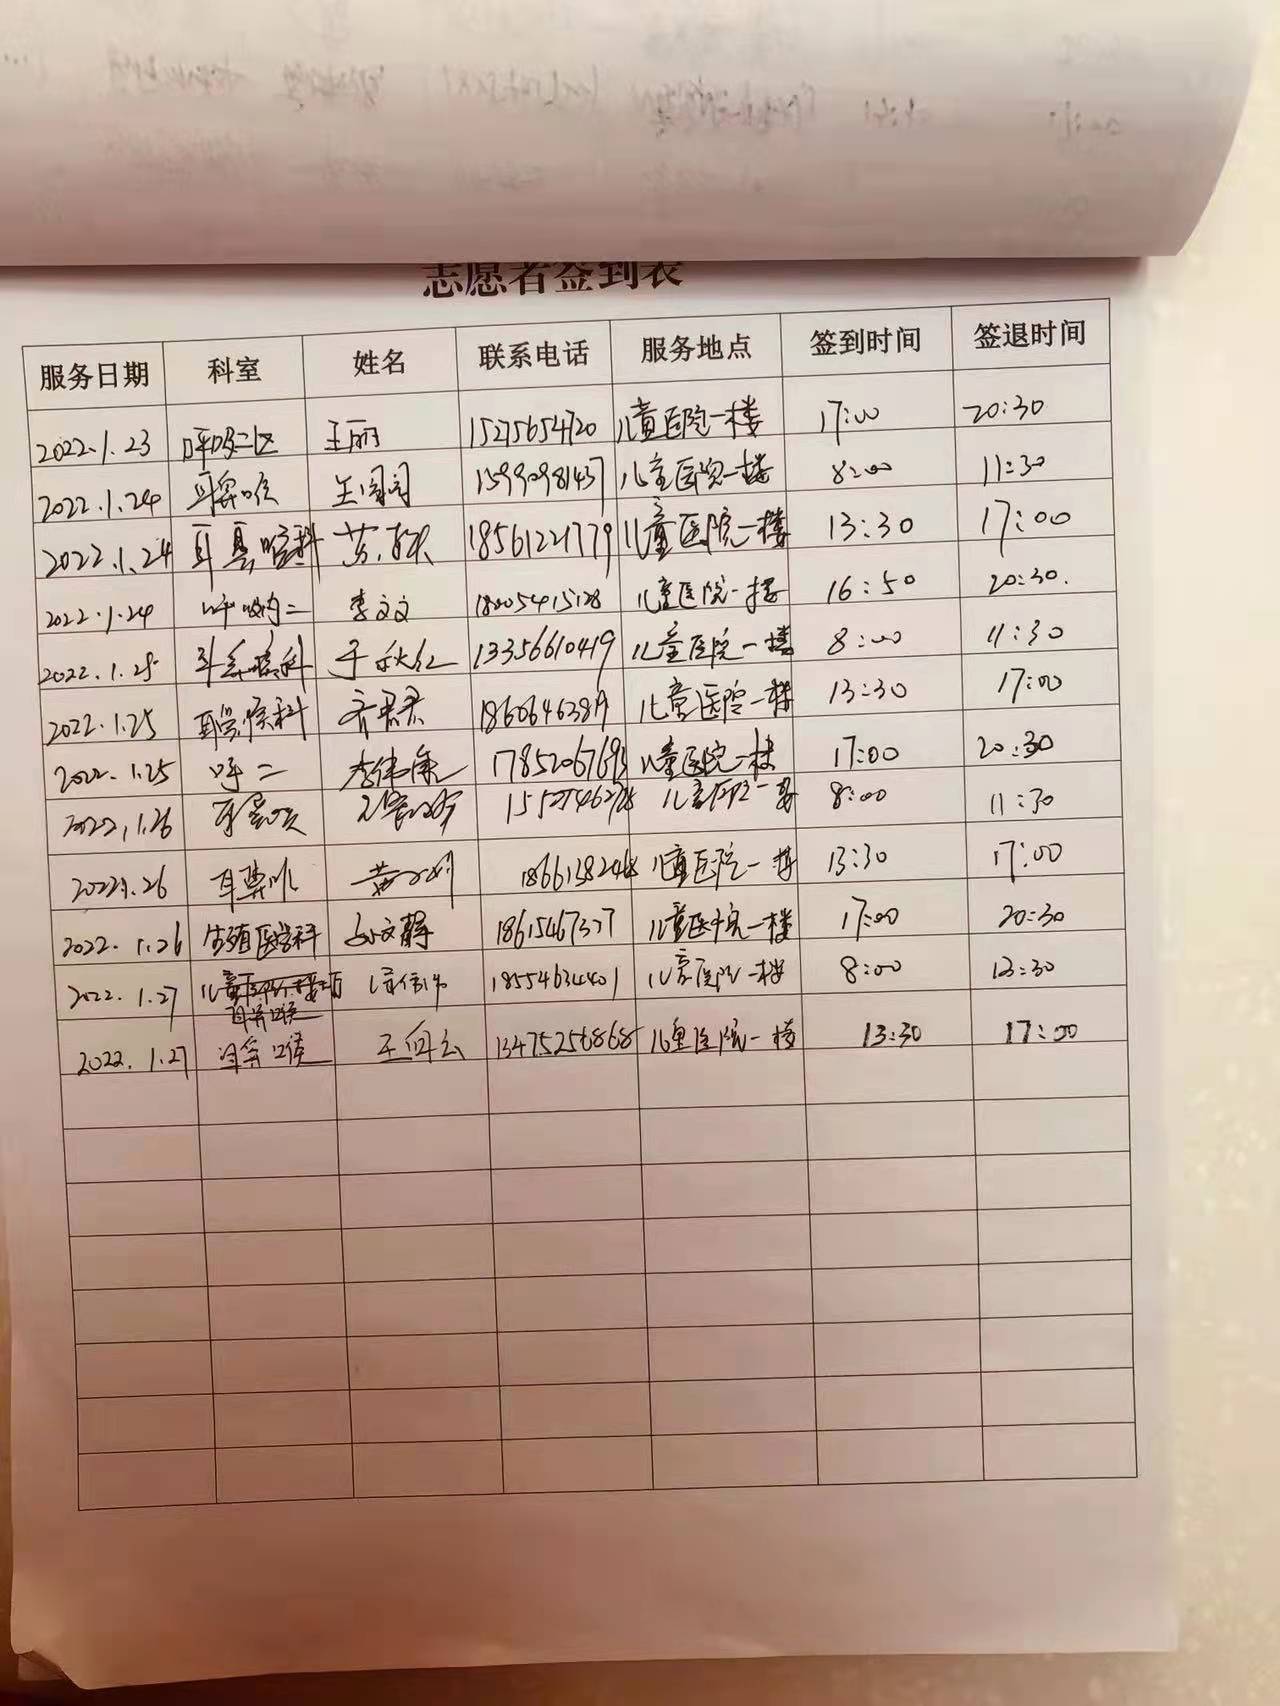 志愿者签到表
服务日期 科室 姓名 联系电话 服务地点 签到时间 签退时间
2022.1.23 呼吸二区 王丽 15275654720 儿童医院一楼 17:00 20:30
2022.1.24 耳鼻喉 王闺闺 15990981437 儿童医院一楼 8:00 11:30
2022.1.24 耳鼻喉科 18561221779 儿童医院一楼 13:30 17:00
2022.1.24 呼吸内二 李文文 18005415128 儿童医院一楼 16:50 20:30.
2022.1.25 耳鼻喉科 于秋红 13356610419 儿童医院一楼 8:00 11:30
2022.1.25 耳鼻喉科 齐君君 儿童医院一楼 13:30 17:00
2022.1.25 呼二 李伟康 儿童医院一楼 17:00 20:30
2022.1.26 耳鼻喉 儿童医院一楼 8:00 11:30
2022.1.26 耳鼻喉 儿童医院一楼 13:30 17:00
2022.1.26 生殖医学科 文静 18615467327 儿童医院一楼 17:00 20:30
2022.1.27 耳鼻喉 18554634401 儿童医院一楼 8:00
2022.1.27 耳鼻喉 13475256868 儿童医院一楼 13:30 17:00